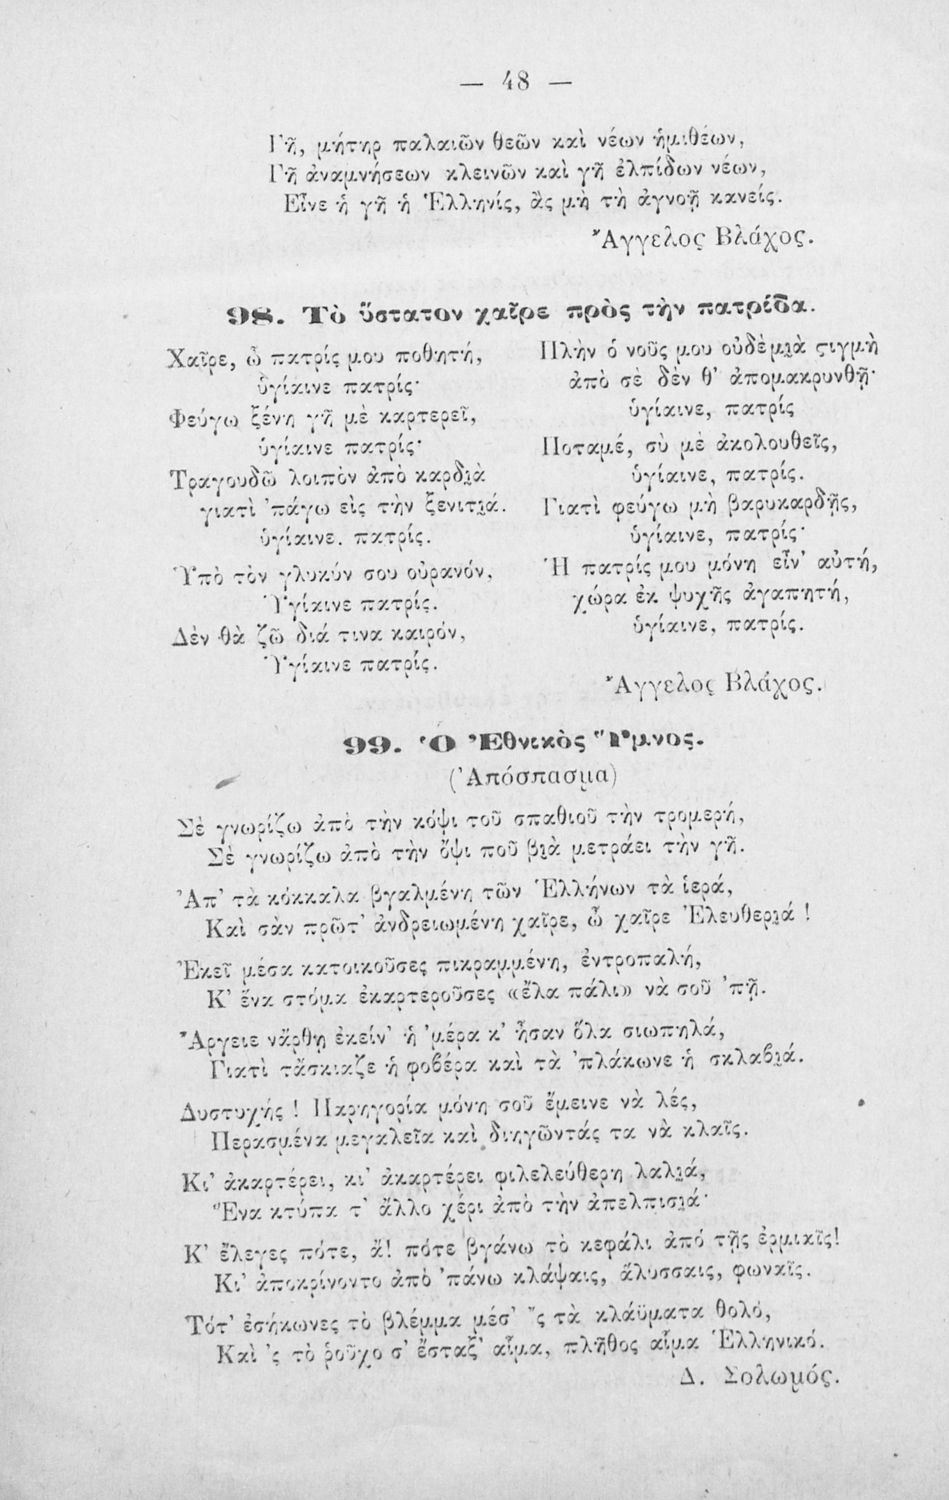 — 48 —
Γῆ, μήτηρ παλαιῶν θεῶν καὶ νέων ἡμιθέων,
Γῆ ἀναμνήσεων κλεινῶν καὶ γῆ ἐλπίδων νέων,
Εἶνε ἡ γῆ ἡ Ἑλληνίς, ἂς μὴ τὴ ἀγνοῇ κανείς.
Ἄγγελος Βλάχος.
98. Τὸ ὕστατον χαῖρε πρὸς τὴν πατρίδα.
Χαῖρε, ὦ πατρίς μου ποθητή,
ὑγίαινε πατρίς·
Φεύγω ξένη γῆ μὲ καρτερεῖ,
ὑγίαινε πατρίς·
Τραγουδῶ λοιπὸν ἀπὸ καρδιὰ
γιατὶ 'πάγω εἰς τὴν ξενιτιά.
ὑγίαινε. πατρίς.
Ὑπὸ τὸν γλυκύν σου οὐρανόν,
Ὑγίαινε πατρίς.
Δὲν θὰ ζῶ διά τινα καιρόν,
Ὑγίαινε πατρίς.
Πλὴν ὁ νοῦς μου οὐδὲ μιὰ στιγμὴ
ἀπὸ σὲ δὲν θ' ἀπομακρυνθῇ·
ὑγίαινε, πατρίς
Ποταμέ, σὺ μὲ ἀκολουθεῖς,
ὑγίαινε, πατρίς.
Γιατὶ φεύγω μὴ βαρυκαρδῇς,
ὑγίαινε, πατρίς·
Ἡ πατρίς μου μόνη εἶν' αὐτή,
χώρα ἐκ ψυχῆς ἀγαπητή,
ὑγίαινε, πατρίς.
Ἄγγελος Βλάχος.
99. Ὁ Ἐθνικὸς Ὕμνος.
(Ἀπόσπασμα)
Σὲ γνωρίζω ἀπὸ τὴν κόψι τοῦ σπαθιοῦ τὴν τρομερή,
Σὲ γνωρίζω ἀπὸ τὴν ὄψι ποῦ βιὰ μετράει τὴν γῆ.
Ἀπ' τὰ κόκκαλα βγαλμένη τῶν Ἑλλήνων τὰ ἱερά,
Καὶ σὰν πρῶτ' ἀνδρειωμένη χαῖρε, ὦ χαῖρε Ἐλευθεριά !
Ἐκεῖ μέσα κατοικοῦσες πικραμμένη, ἐντροπαλή,
Κ' ἕνα στόμα ἐκαρτεροῦσες «ἔλα πάλι» νὰ σοῦ 'πῇ.
Ἄργειε νἄρθῃ ἐκείν' ἡ 'μέρα κ' ἦσαν ὅλα σιωπηλά,
Γιατὶ τἄσκιαζε ἡ φοβέρα καὶ τὰ 'πλάκωνε ἡ σκλαβιά.
Δυστυχής ! Παρηγορία μόνη σοῦ ἔμεινε νὰ λές,
Περασμένα μεγαλεῖα καὶ διηγῶντάς τα νὰ κλαῖς.
Κι' ἀκαρτέρει, κι' ἀκαρτέρει φιλελεύθερη λαλιά,
Ἕνα κτύπα τ' ἄλλο χέρι ἀπὸ τὴν ἀπελπισιά·
Κ' ἔλεγες πότε, ἄ! πότε βγάνω τὸ κεφάλι ἀπό τῇς ἐρμιαῖς!
Κι' ἀποκρίνοντο ἀπὸ 'πάνω κλάψαις, ἅλυσσαις, φωναῖς.
Τότ' ἐσήκωνες τὸ βλέμμα μέσ' 'ς τὰ κλάϋματα θολό,
Καὶ 'ς τὸ ῥοῦχο σ' ἔσταξ' αἷμα, πλῆθος αἷμα Ἑλληνικό.
Δ. Σολωμός.